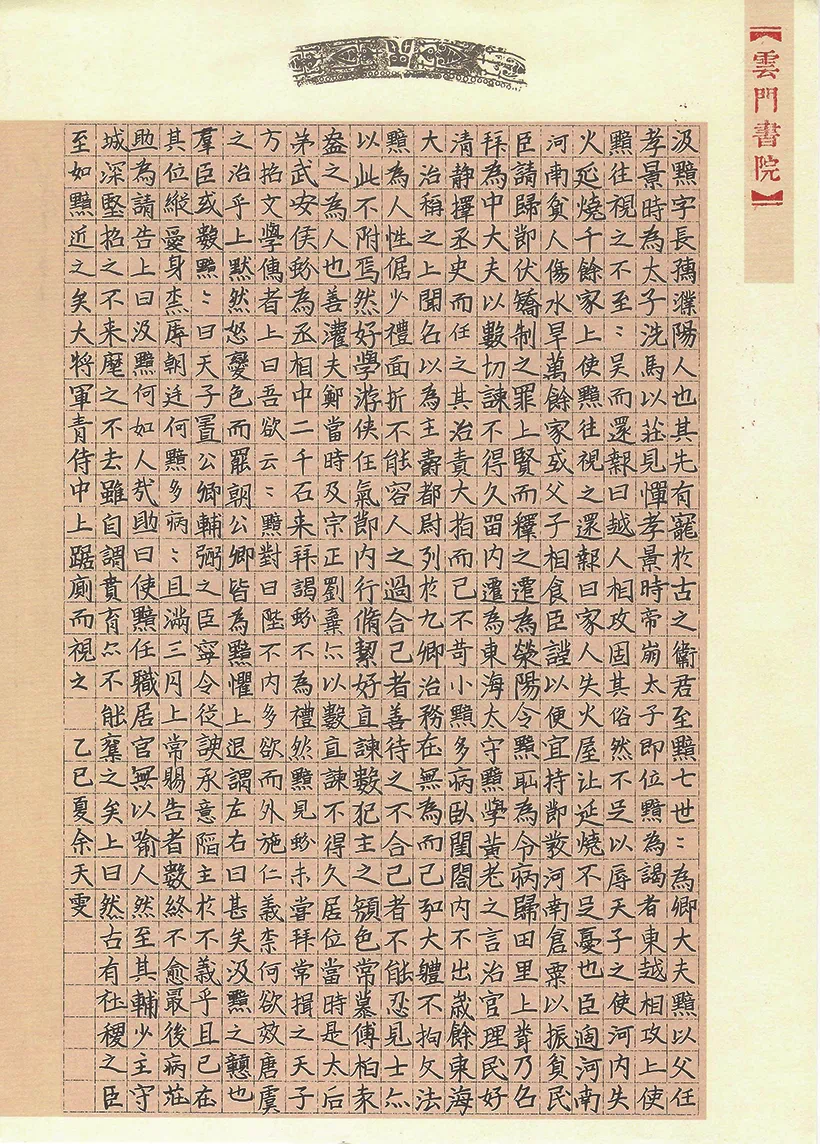 【雲門書院】
汲黯字長孺濮陽人也其先有寵於古之衛君至黯七世〻為卿大夫黯以父任
孝景時為太子洗馬以莊見憚孝景時帝崩太子即位黯為謁者東越相攻上使
黯往視之不至〻吳而還報曰越人相攻固其俗然不足以辱天子之使河內失
火延燒千餘家上使黯往視之還報曰家人失火屋比延燒不足憂也臣過河南
河南貧人傷水旱萬餘家或父子相食臣謹以便宜持節發河南倉粟以振貧民
臣請歸節伏矯制之罪上賢而釋之遷為滎陽令黯恥為令病歸田里上聞乃召
拜為中大夫以數切諫不得久留內遷為東海太守黯學黃老之言治官理民好
清靜擇丞史而任之其治責大指而已不苛小黯多病臥閨閤內不出歲餘東海
大治稱之上聞召以為主爵都尉列於九卿治務在無為而已弘大體不拘文法
黯為人性倨少禮面折不能容人之過合己者善待之不合己者不能忍見士亦
以此不附焉然好學游俠任氣節內行脩絜好直諫數犯主之顏色常慕傅柏袁
盎之為人也善灌夫鄭當時及宗正劉棄亦以數直諫不得久居位當時是太后
弟武安侯蚡為丞相中二千石来拜謁蚡不為禮然黯見蚡未嘗拜常揖之天子
方招文學儒者上曰吾欲云〻黯對曰陛下內多欲而外施仁義柰何欲效唐虞
之治乎上默然怒變色而罷朝公卿皆為黯懼上退謂左右曰甚矣汲黯之戇也
羣臣或數黯〻曰天子置公卿輔弼之臣寧令從諛承意陷主於不義乎且已在
其位縱愛身柰辱朝廷何黯多病〻且滿三月上常賜告者數終不愈最後病莊
助為請告上曰汲黯何如人哉助曰使黯任職居官無以踰人然至其輔少主守
城深堅招之不来麾之不去雖自謂賁育亦不能奪之矣上曰然古有社稷之臣
至如黯近之矣大將軍青侍中上踞廁而視之 乙巳夏余天雯